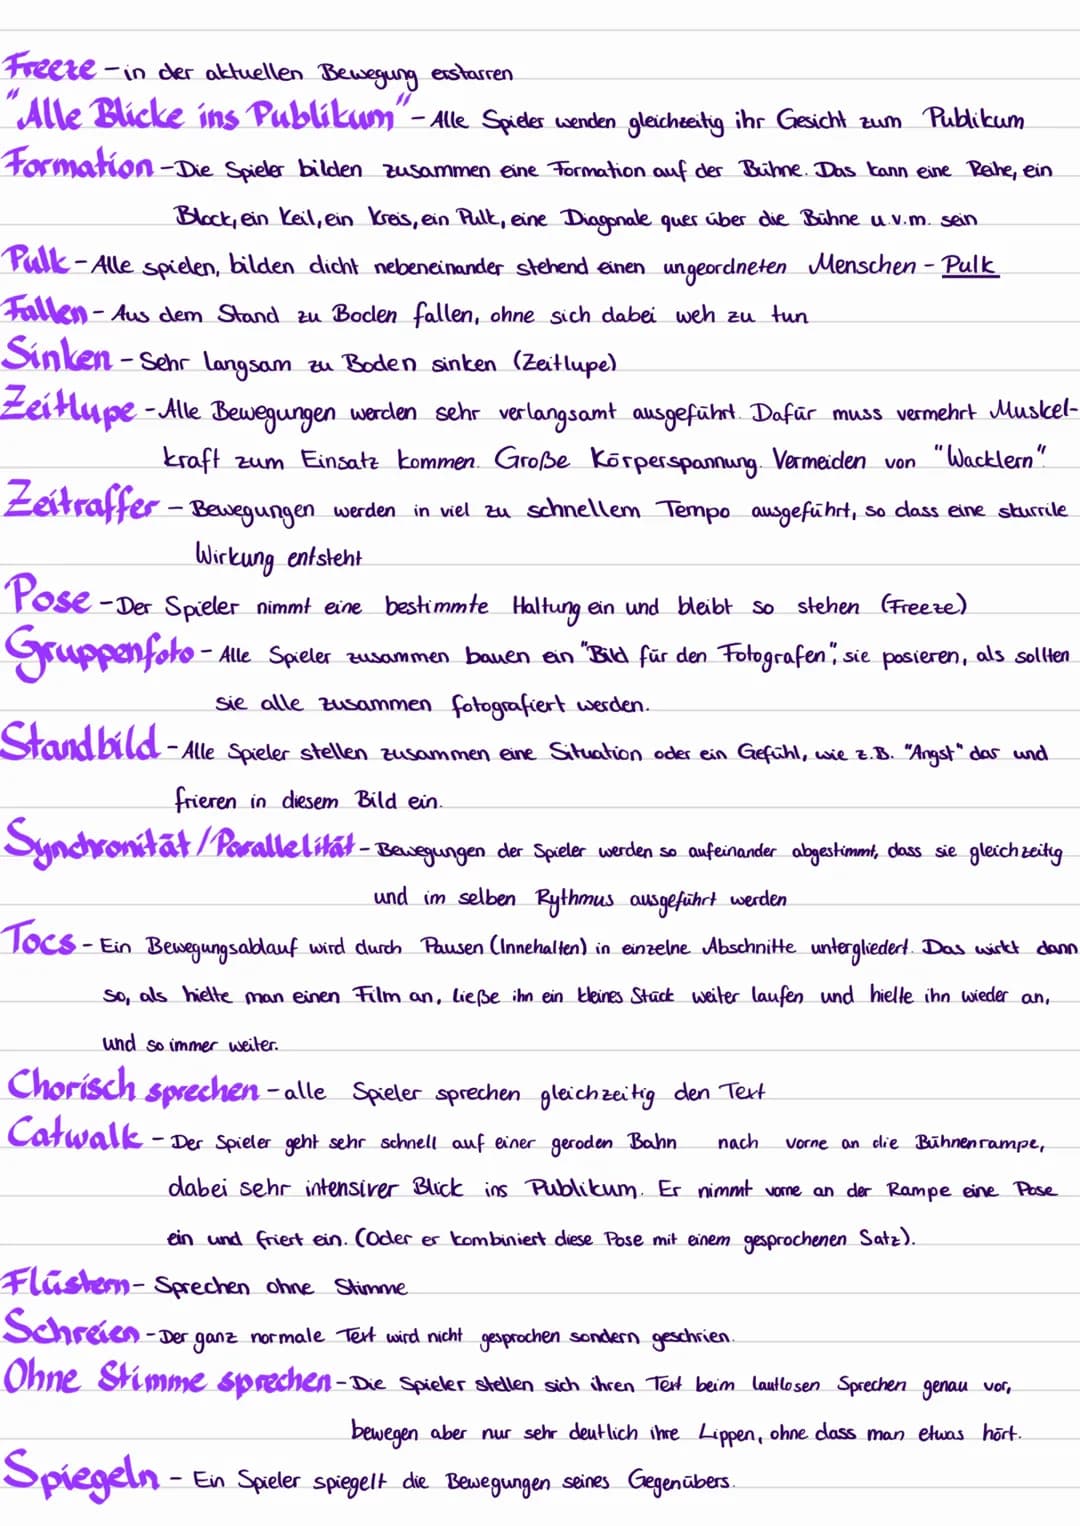 Freeze - in der aktuellen Bewegung erstarren
"Alle Blicke ins Publikum" - Alle Spieler wenden gleichzeitig ihr Gesicht zum Publikum
Formation - Die Spieler bilden zusammen eine Formation auf der Bühne. Das kann eine Reihe, ein
Block, ein Keil, ein Kreis, ein Pulk, eine Diagonale quer über die Bühne u.v.m. sein
Pulk - Alle spielen, bilden dicht nebeneinander stehend einen ungeordneten Menschen - Pulk
Fallen - Aus dem Stand zu Boden fallen, ohne sich dabei weh zu tun
Sinken - Sehr langsam zu Boden sinken (Zeitlupe)
Zeitlupe - Alle Bewegungen werden sehr verlangsamt ausgeführt. Dafür muss vermehrt Muskel-
kraft zum Einsatz kommen. Große Körperspannung. Vermeiden von "Wacklern".
Zeitraffer - Bewegungen werden in viel zu schnellem Tempo ausgeführt, so dass eine skurrile
Wirkung entsteht
Pose - Der Spieler nimmt eine bestimmte Haltung ein und bleibt so stehen (Freeze)
Gruppenfoto - Alle Spieler zusammen bauen ein "Bild für den Fotografen", sie posieren, als sollten
sie alle zusammen fotografiert werden.
Standbild - Alle Spieler stellen zusammen eine Situation oder ein Gefühl, wie z.B. "Angst" dar und
frieren in diesem Bild ein.
Synchronität / Parallelität - Bewegungen der Spieler werden so aufeinander abgestimmt, dass sie gleichzeitig
und im selben Rythmus ausgeführt werden
Tocs - Ein Bewegungsablauf wird durch Pausen (Innehalten) in einzelne Abschnitte untergliedert. Das wirkt dann
so, als hielte man einen Film an, ließe ihn ein kleines Stück weiter laufen und hielte ihn wieder an,
und so immer weiter.
Chorisch sprechen - alle Spieler sprechen gleichzeitig den Text
Catwalk - Der Spieler geht sehr schnell auf einer geraden Bahn nach vorne an die Bühnenrampe,
dabei sehr intensiver Blick ins Publikum. Er nimmt vorne an der Rampe eine Pose
ein und friert ein. (Oder er kombiniert diese Pose mit einem gesprochenen Satz).
Flüstern - Sprechen ohne Stimme
Schreien - Der ganz normale Text wird nicht gesprochen sondern geschrien.
Ohne Stimme sprechen - Die Spieler stellen sich ihren Text beim lautlosen Sprechen genau vor,
bewegen aber nur sehr deutlich ihre Lippen, ohne dass man etwas hört.
Spiegeln - Ein Spieler spiegelt die Bewegungen seines Gegenübers.